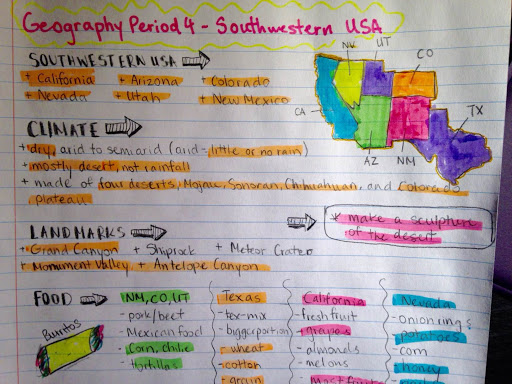 Geography Period 4 - Southwestern USA
SOUTHWESTERN USA
+ California + Arizona + Colorado
+ Nevada + Utah + New Mexico
NV
UT
CO
CA
TX
AZ
NM
CLIMATE
+ dry, arid to semiarid (arid = little or no rain)
+ mostly desert, not rainfall
+ made of four deserts, Mojave, Sonoran, Chihuahuan, and Colorado
plateau
* make a sculpture
of the desert
LANDMARKS
+ Grand Canyon + Shiprock + Meteor Crater
+ Monument Valley + Antelope Canyon
FOOD
Burritos
NM, CO, UT
- pork/beef
- Mexican food
- Corn, chile
- tortillas
Texas
- tex-mix
- bigger portion
- wheat
- cotton
- grain
California
- fresh fruit
- grapes
- almonds
- melons
Nevada
- onion rings
- potatoes
- corn
- honey